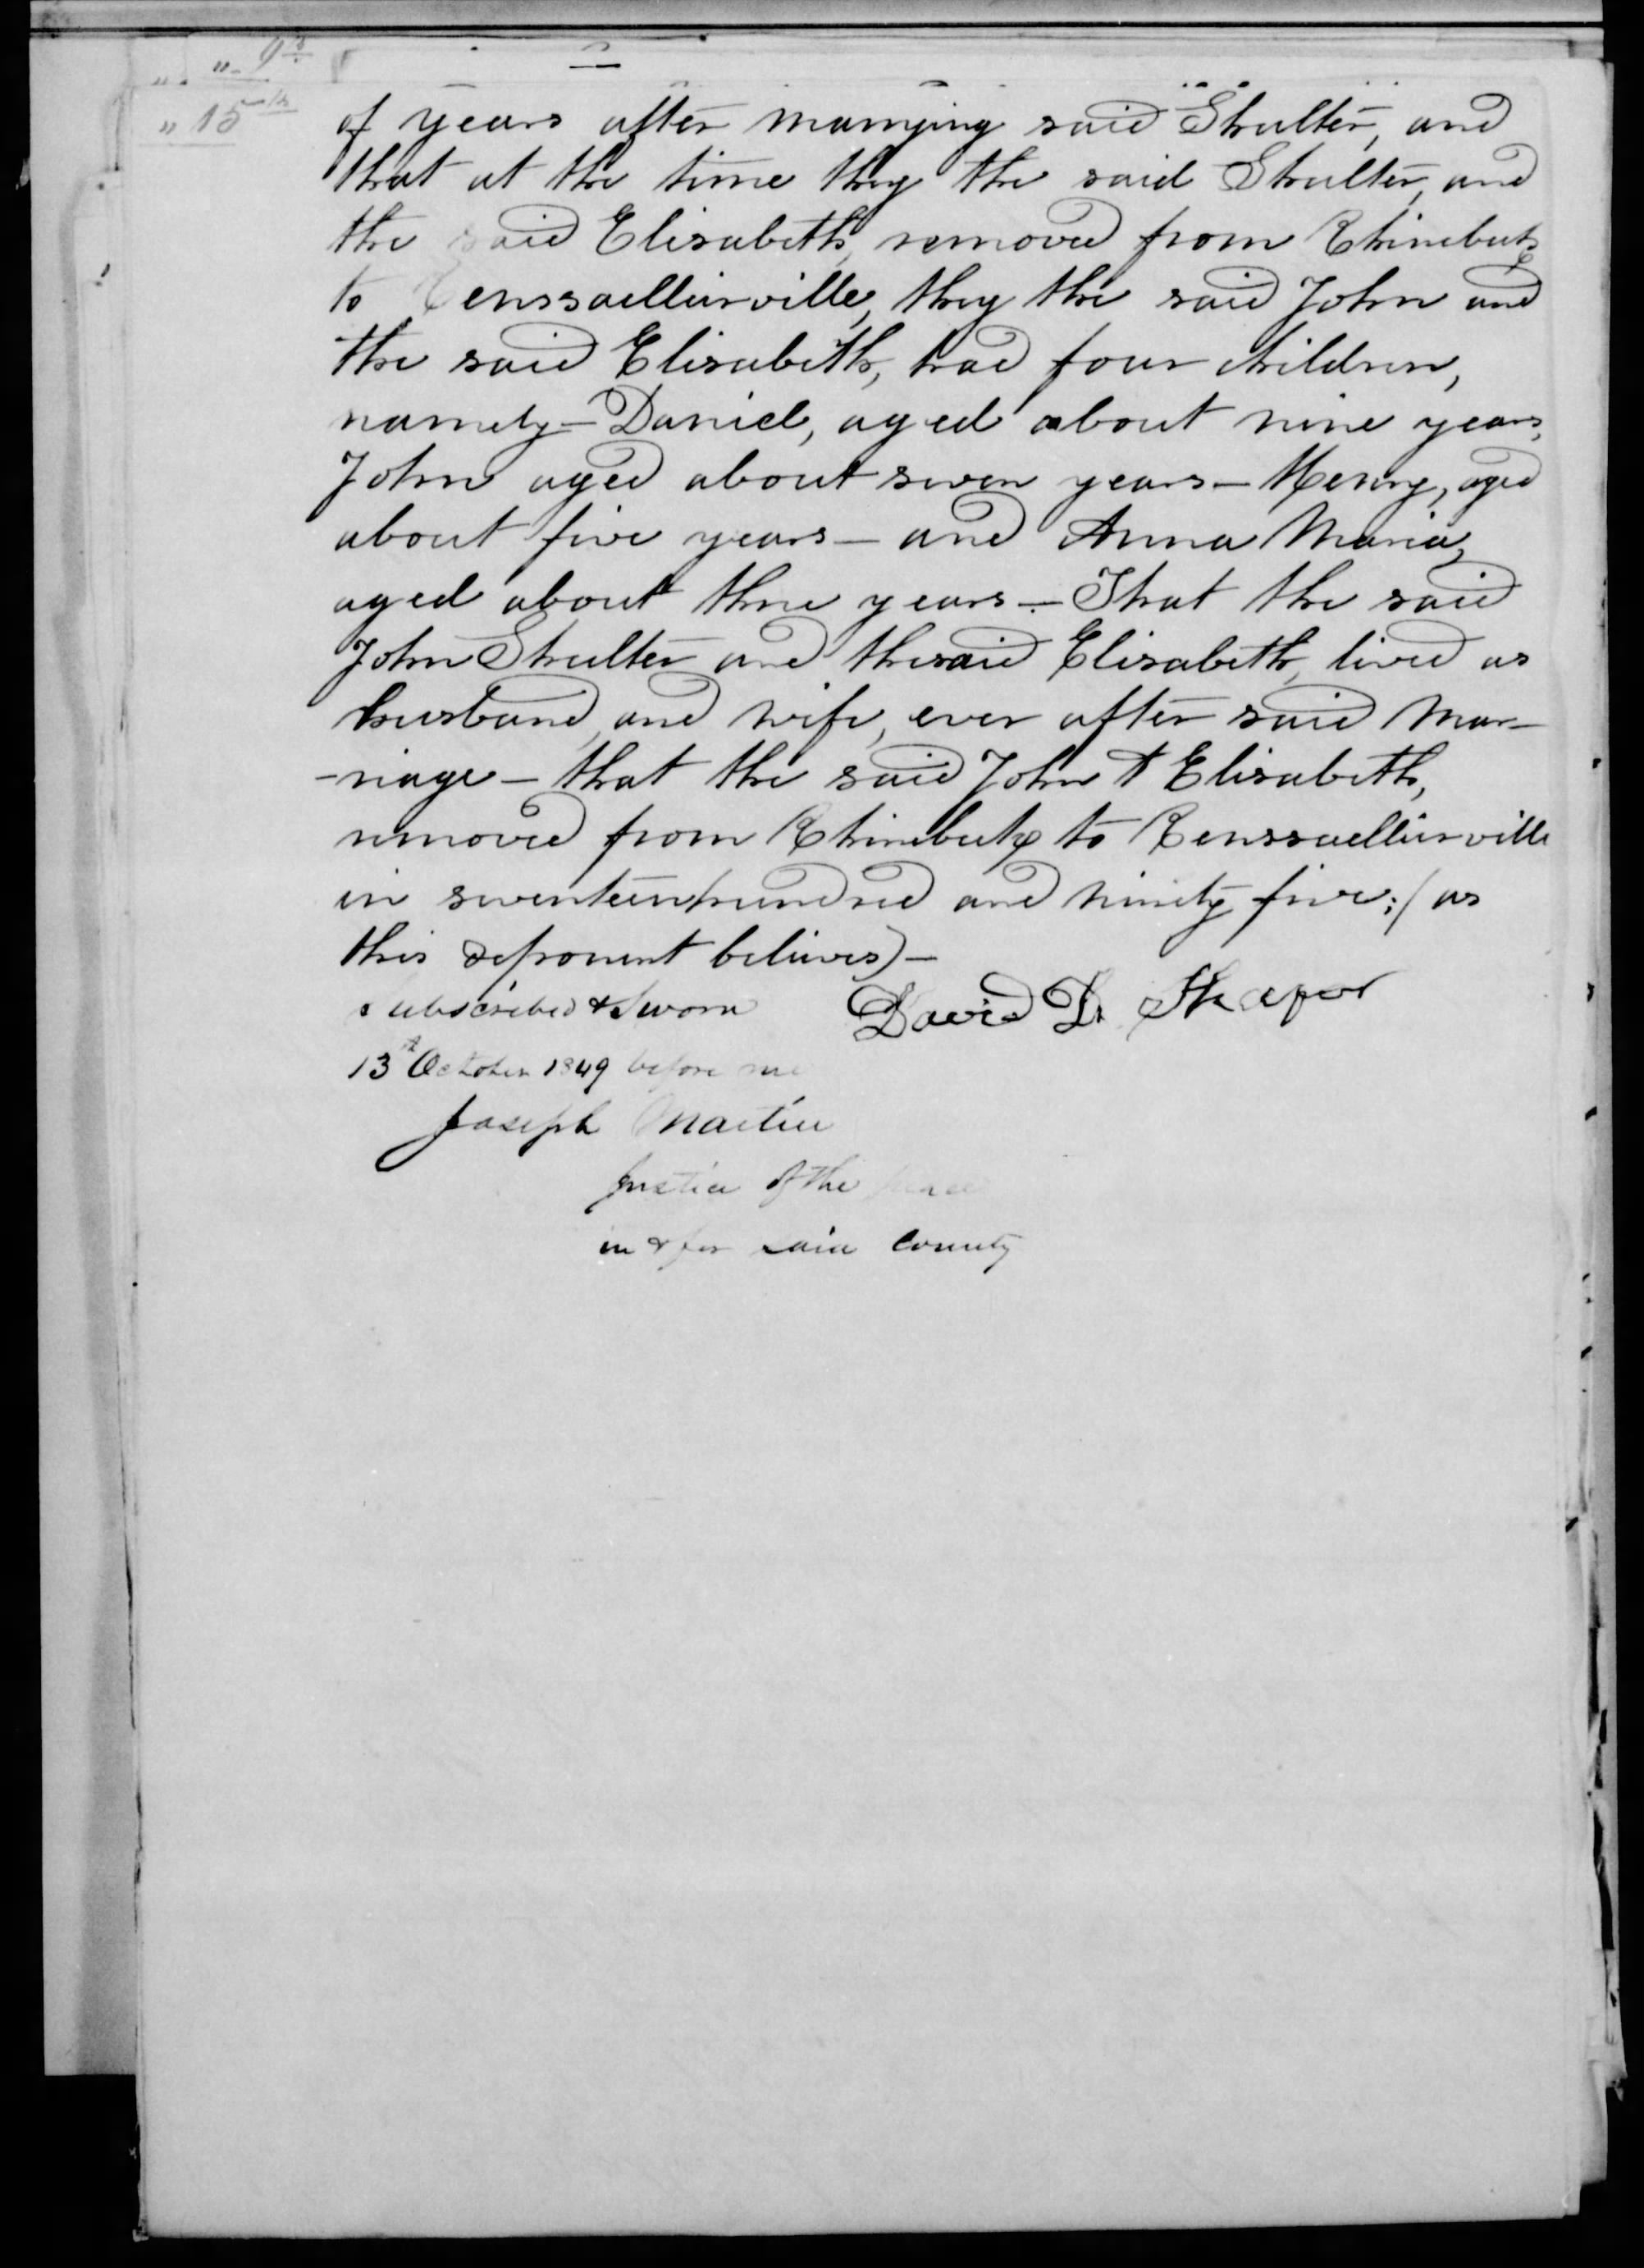 " " 9th
" 15th
of years after marrying said Shulter, and
that at the time they the said Shulter, and
the said Elisabeth, removed from Rhinebeck
to Renssaellierville, they the said John and
the said Elisabeth, had four children,
namely – Daniel, aged about nine years,
John aged about seven years – Henry, aged
about five years – and Anna Maria,
aged about three years – That the said
John Shulter and the said Elisabeth, lived as
husband, and wife, ever after said Mar-
-riage – that the said John & Elisabeth,
removed from Rhinebeck to Renssaellierville
in seventeen hundred and ninety five; (as
this deponent believes) –
Subscribed & Sworn David D. Shafer
13th October 1849 before me
Joseph Martin
Justice of the peace
in & for said County